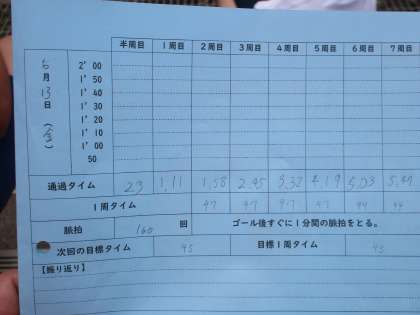 半周目 1周目 2周目 3周目 4周目 5周目 6周目 7周目
6月13日(金)
2'00
1'50
1'40
1'30
1'20
1'10
1'00
50
通過タイム 23 1,11 1,58 2,45 3,32 4,19 5,03 5,47
1周タイム 47 47 47 47 44 44
脈拍 160 回 ゴール後すぐに1分間の脈拍をとる。
次回の目標タイム 45 目標1周タイム 45
【振り返り】